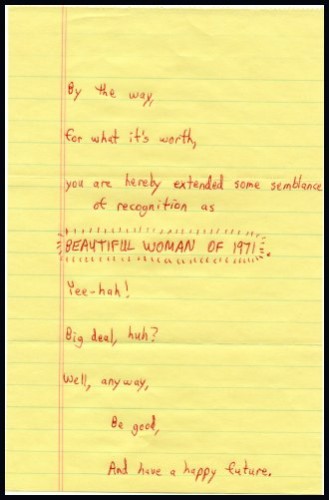 By the way,
for what it's worth,
you are hereby extended some semblance
of recognition as
BEAUTIFUL WOMAN OF 1971.
Yee-hah!
Big deal, huh?
Well, anyway,
Be good,
And have a happy future.